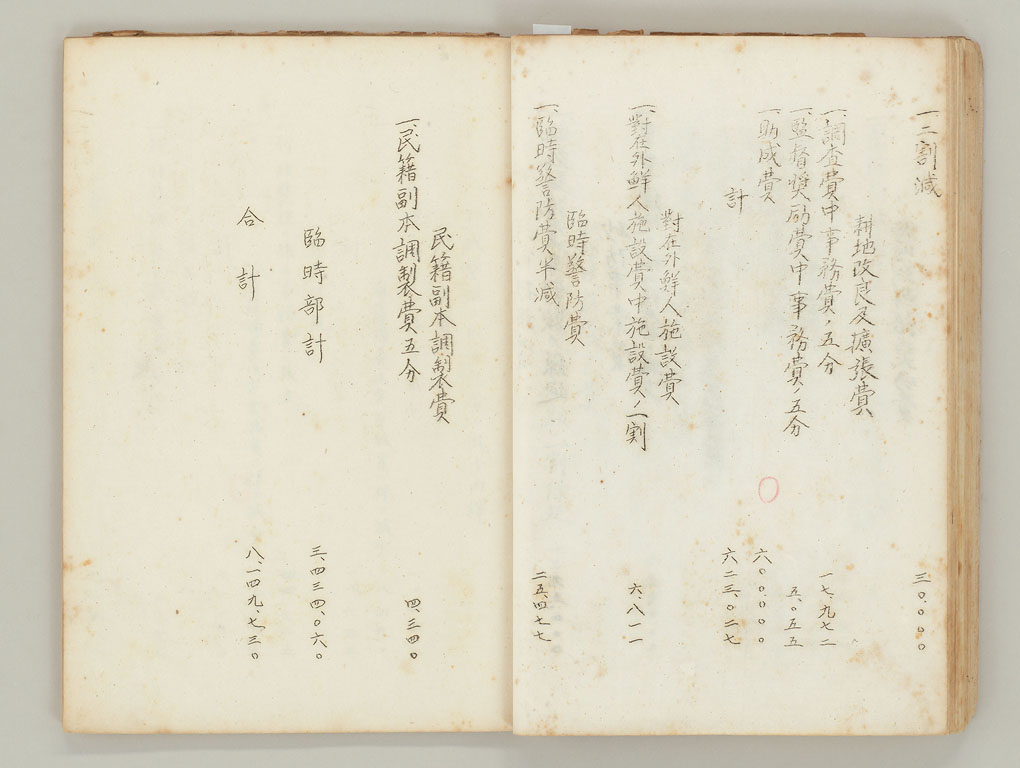 一、二割減 三〇、〇〇〇
耕地改良及擴張費
一、調査費中事務費ノ五分 一七、九七二
一、監督奬励費中事務費ノ五分 五、〇五五
一、助成費 六〇〇、〇〇〇
計 六二三、〇二七
對在外鮮人施設費
一、對在外鮮人施設費中施設費ノ一割 六、八一一
臨時警防費
一、臨時警防費半減 二五、四七七
民籍副本調製費
一、民籍副本調製費五分 四、三四〇
臨時部計 三、四三四、〇六〇
合計 八、一四九、七三〇